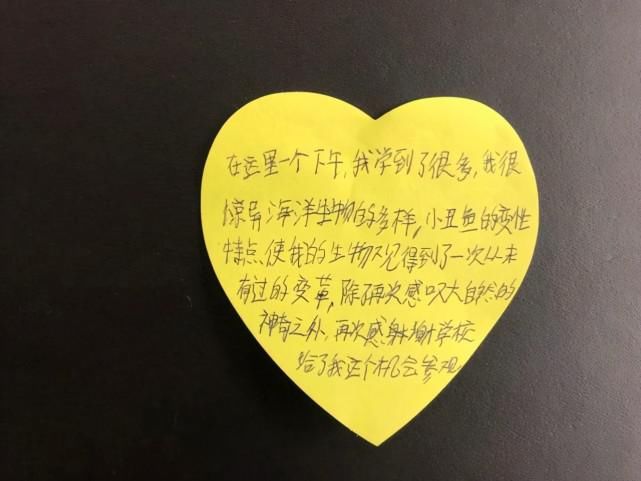 在这里一个下午,我学到了很多,我很
惊异海洋生物的多样,小丑鱼的变性
特点使我的生物观得到了一次从未
有过的变革,除再次感叹大自然的
神奇之外,再次感谢学校
给了我这个机会参观